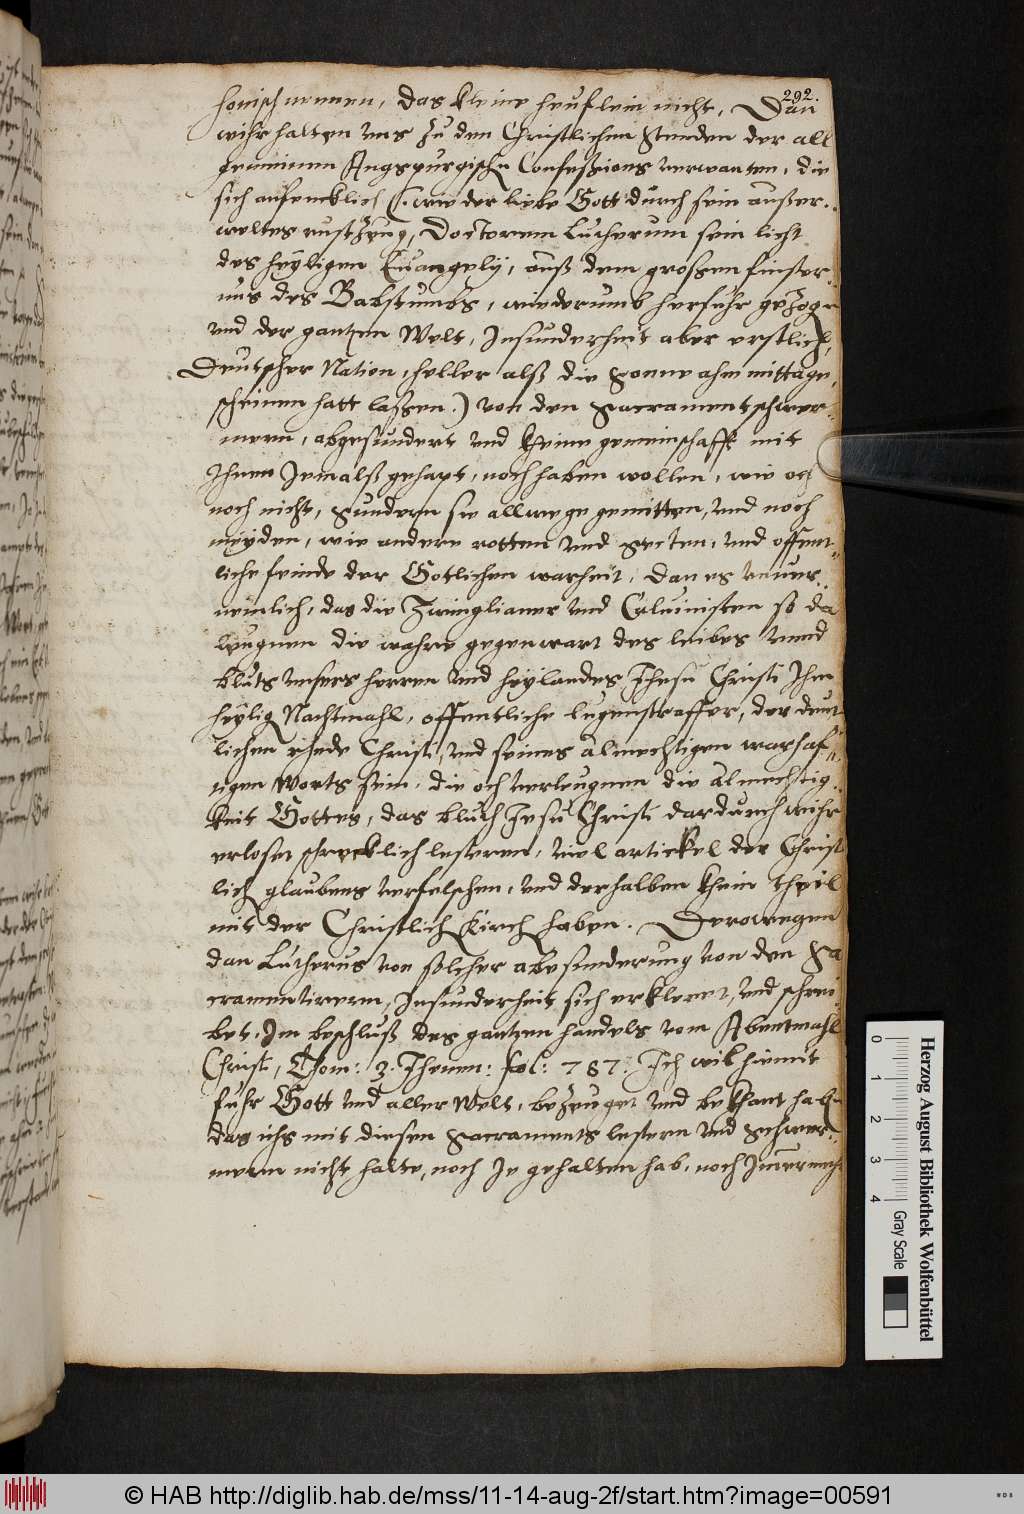 292.
honisch nennen, das kleine heuflein nicht, Dan
wihr halten uns zu den Christlichen Stenden der all
gemeinen Augspurgische Confeßions verwanten, die
sich anfencklich (: wie der liebe Gott durch sein außer,,
weltes rustzeug, Doctorem Lutherum sein licht
des heyligen Euangelij, auß dem grossen finster,,
nus des Babstumbs, wiederumb herfuhr gezogen
und der gantzen Welt, Insunderheit aber erstlich,
Deutscher Nation, heller alß die Sonne ahm mittage,
scheinen hatt laßen.) von den Sacramentschwer,,
mern, abgesundert und kheine gemeinschafft mit
Ihnen Jemalß gehapt, noch haben wollen, wie och
noch nicht, Sundern sie allwege gemitten, und noch
meyden, wie andere rotten und Secten, und offent,,
liche feinde der Gotlichen warheit, Dan es
nemlich, das die Zwinglianer und Caluinisten so da
leugnen die wahre gegenwart des leibes unnd
bluts unsers herren und heylandes Jhesu Christi Ihm
heylig Nachtmahl, offentliche lugenstraffer, der deut
lichen rhede Christi, und seines almechtigen warhaf,,
tigen Worts sein, die och verleugnen die Almechtig,,
keit Gottes, das bluth Jesu Christi dardurch wihr
erloset schrecklich lesteren, viel artickel der Christ
lich glaubens verfelschen, und derhalben khein theil
mit der Christlich Kirch haben. Derowegen
dan Lutherus von solcher absunderung von den Sa
cramentirern, Insunderheit sich erkleret, und schrei
bet, Im beschluß des gantzen handels vom Abentmahl
Christi, Thom: 3. Jhenen: fol: 787: Ich wil hiemit
fuhr Gott und aller Welt, bezeuget und bekhant haben
das ichs mit diesen Sacraments lestern und Schwer,,
mern nicht halte, noch Je gehalten hab, noch Immermehr
0 1 2 3 4
Gray Scale
Herzog August Bibliothek Wolfenbüttel
© HAB http://diglib.hab.de/mss/11-14-aug-2f/start.htm?image=00591